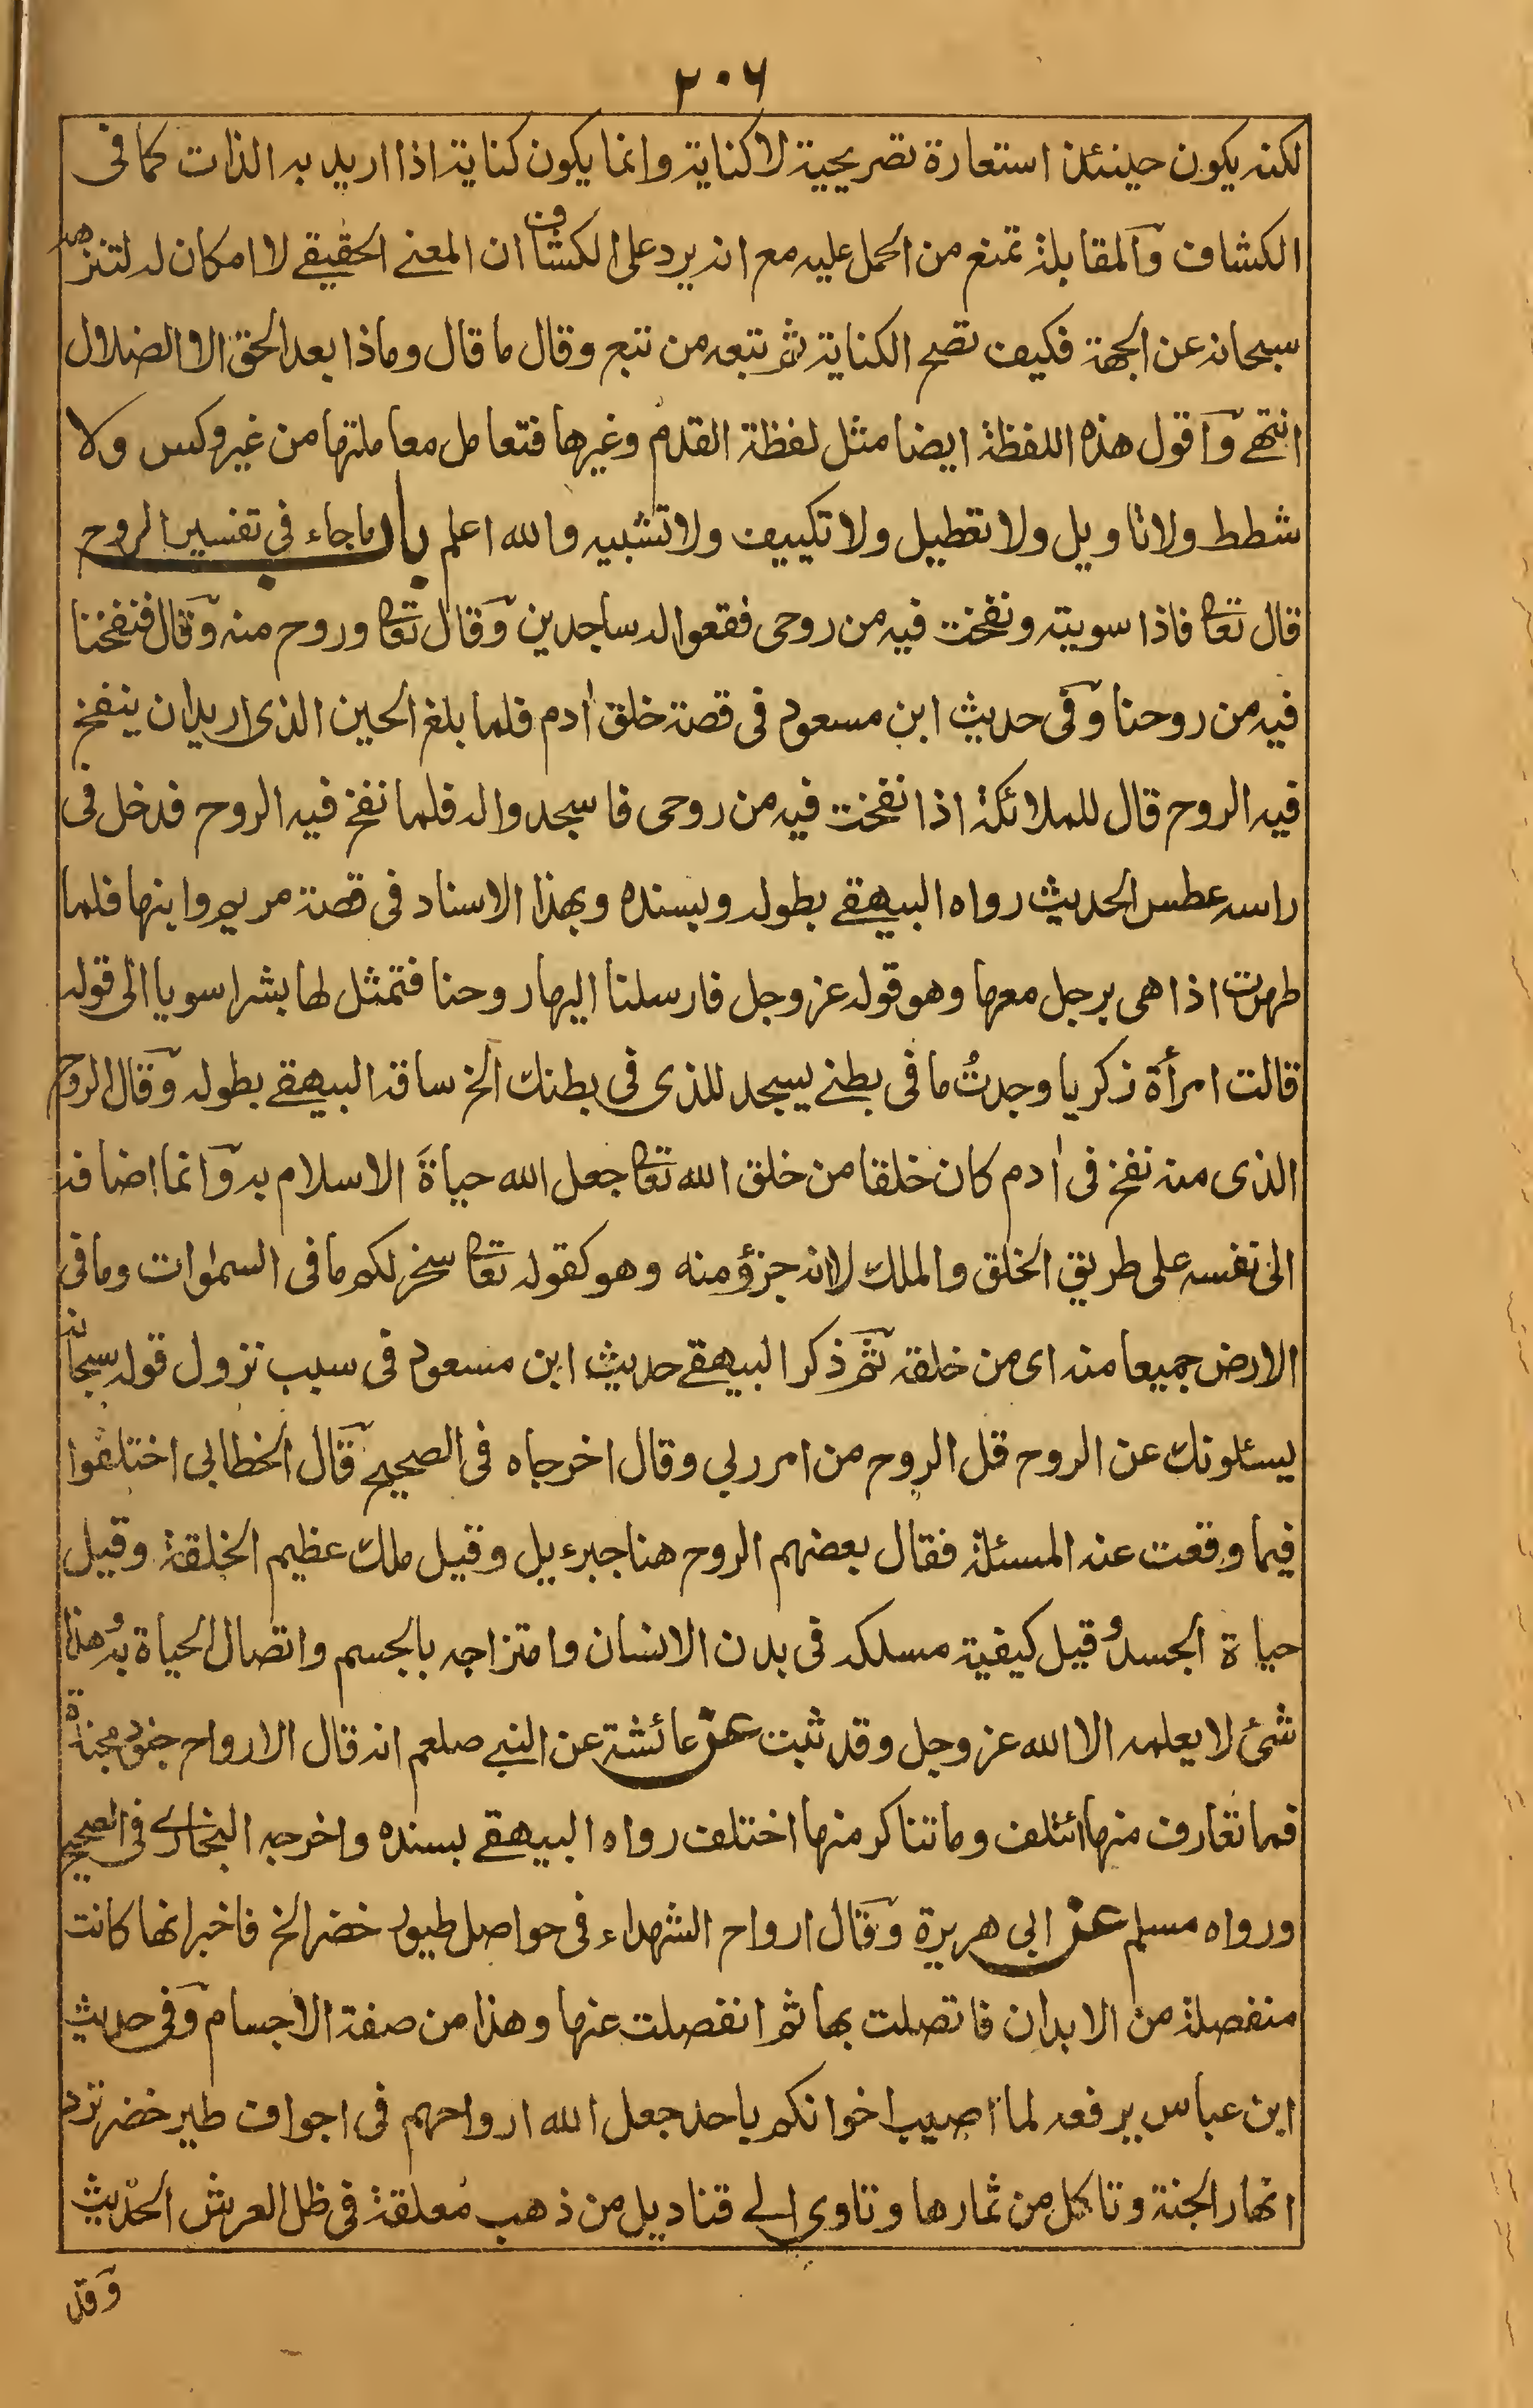 ٢٠٦
لكنه يكون حينئذ استعارة تصريحية لا كناية وانما يكون كناية اذا اريد به الذات كما فى
الكشاف والمقابلة تمنع من الحمل عليه مع انه يرد على الكشاف ان المعنى الحقيقے لا امكان له لتنزهه
سبحانه عن الجهة فكيف تصح الكناية ثم تبعه من تبع وقال ما قال وماذا بعد الحق الا الضلال
انتهے واقول هذه اللفظة ايضا مثل لفظة القدم وغيرها فتعامل معاملتها من غير وكس ولا
شطط ولا تاويل ولا تعطيل ولا تكييف ولا تشبيه والله اعلم باب ما جاء فى تفسير الروح
قال تعالى فاذا سويته ونفخت فيه من روحى فقعوا له ساجدين وقال تعالى وروح منه وقال فنفخنا
فيه من روحنا وفى حديث ابن مسعود فى قصة خلق اٰدم فلما بلغ الحين الذى اريد ان ينفخ
فيه الروح قال للملائكة اذا نفخت فيه من روحى فاسجدوا له فلما نفخ فيه الروح فدخل فى
راسه عطس الحديث رواه البيهقے بطوله وبسنده وبهذا الاسناد فى قصة مريم وابنها فلما
طهرت اذا هى برجل معها وهو قوله عز وجل فارسلنا اليها روحنا فتمثل لها بشرا سويا الى قوله
قالت امرأة زكريا وجدتُ ما فى بطنے يسجد للذى فى بطنك الخ ساقه البيهقے بطوله وقال الروح
الذى منه نفخ فى اٰدم كان خلقا من خلق الله تعالى جعل الله حياةَ الاسلام به وانما اضافه
الى نفسه على طريق الخلق والملك لا انه جزؤ منه وهو كقوله تعالى سخر لكم ما فى السمٰوات وما فى
الارض جميعا منه اى من خلقه ثم ذكر البيهقے حديث ابن مسعود فى سبب نزول قوله سبحانه
يسئلونك عن الروح قل الروح من امر ربى وقال اخرجاه فى الصحيح قال الخطابى اختلفوا
فيما وقعت عنه المسئلة فقال بعضهم الروح هنا جبرءيل وقيل ملك عظيم الخلقة وقيل
حياة الجسد وقيل كيفية مسلكه فى بدن الانسان وامتزاجه بالجسم واتصال الحياة به وهذا
شئ لا يعلمه الا الله عز وجل وقد ثبت عن عائشة عن النبے صلعم انه قال الارواح جنود مجندة
فما تعارف منها ائتلف وما تناكر منها اختلف رواه البيهقے بسنده واخرجه البخارى فى الصحيح
ورواه مسلم عن ابى هريرة وقال ارواح الشهداء فى حواصل طيور خضر الخ فاخبر انها كانت
منفصلة من الابدان فاتصلت بها ثم انفصلت عنها وهذا من صفة الاجسام وفى حديث
ابن عباس يرفعه لما اصيب اخوانكم باحد جعل الله ارواحهم فى اجواف طير خضر ترد
انهار الجنة وتاكل من ثمارها وتاوى الے قناديل من ذهب معلقة فى ظل العرش الحديث
وقد